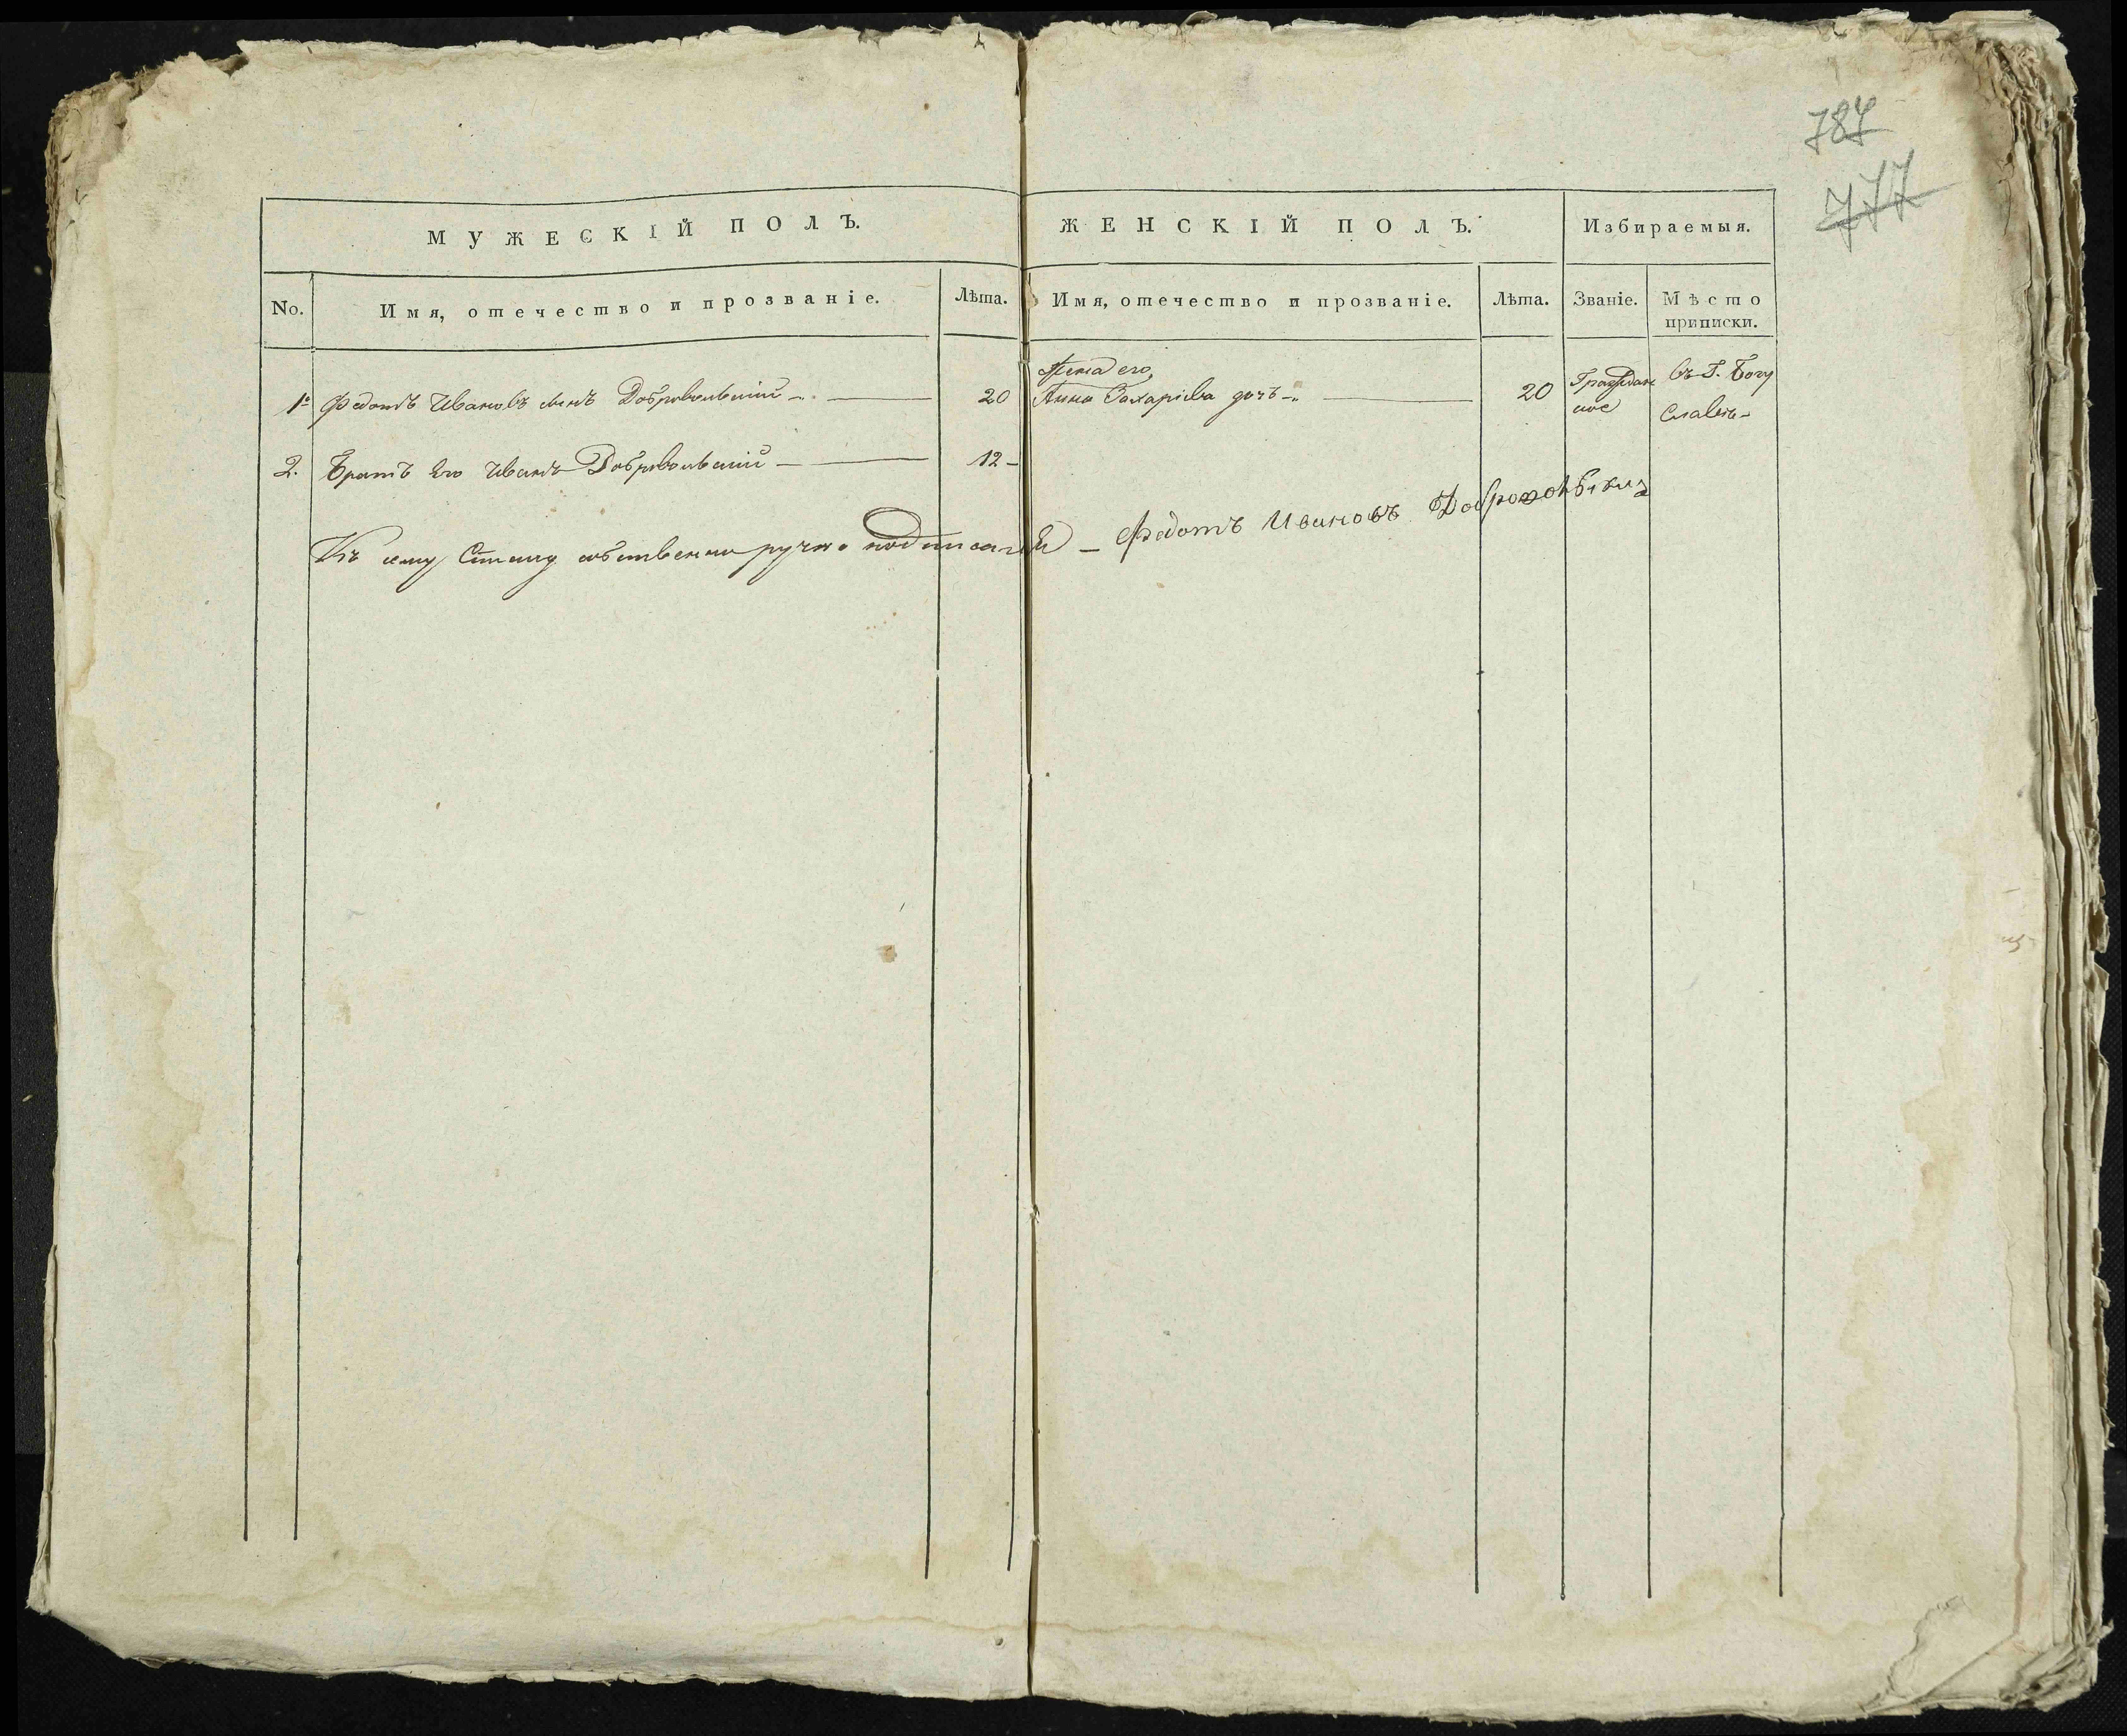 787
777
МУЖЕСКІЙ ПОЛЪ.
ЖЕНСКІЙ ПОЛЪ.
Избираемыя.
No.
Имя, отечество и прозваніе.
Лѣта.
Имя, отечество и прозваніе.
Лѣта.
Званіе.
Мѣсто
приписки.
Жена его
1е Федотъ Ивановъ сынъ Добровольскій 20 Анна Захаріева дочь 20 Граждан въ Г. Богу
ское Славль
2. Братъ Его Иванъ Добровольскій 12
Къ сему Стану собственно ручно подписался Федотъ Ивановъ